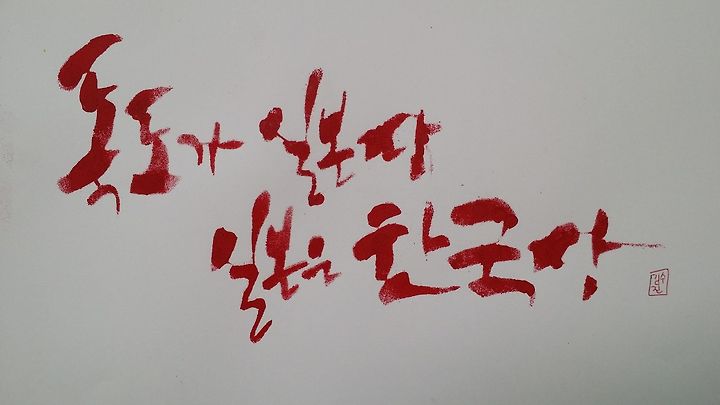 독도가 일본땅
일본은 한국땅
김수진